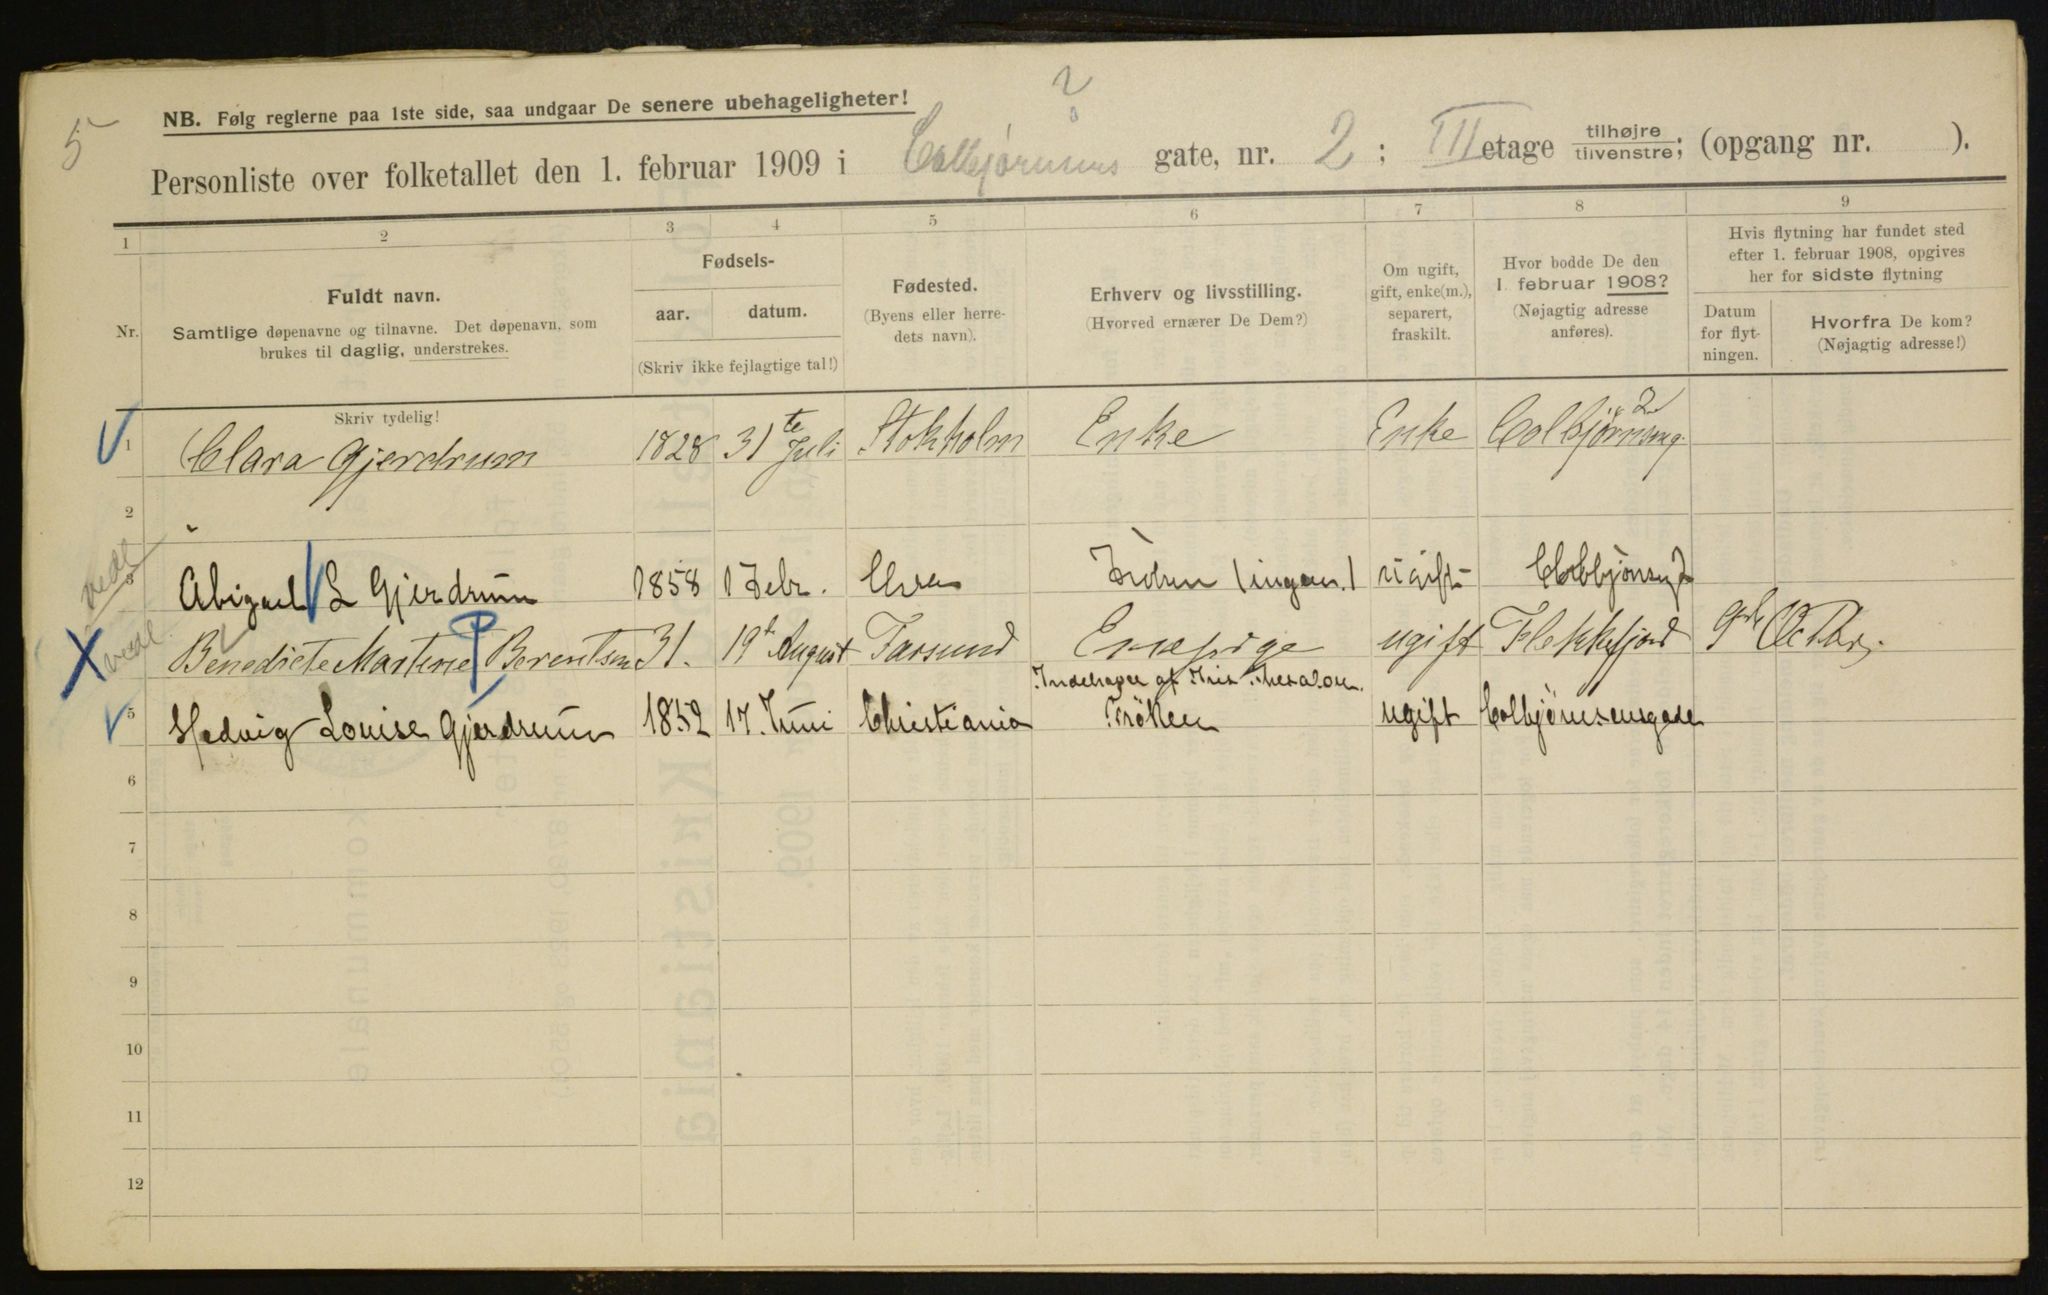 5
NB. Følg reglerne paa 1ste side, saa undgaar De senere ubehageligheter!
Personliste over folketallet den 1. februar 1909 i Colbjørnsens gate, nr. 2; III etage tilhøjre tilvenstre; (opgang nr. ).
1 2 3 4 5 6 7 8 9
Nr.
Fuldt navn.
Samtlige døpenavne og tilnavne. Det døpenavn, som
brukes til daglig, understrekes.
Fødsels-
aar. datum.
(Skriv ikke fejlagtige tal!)
Fødested.
(Byens eller herre-
dets navn).
Erhverv og livsstilling.
(Hvorved ernærer De Dem?)
Om ugift,
gift, enke(m.),
separert,
fraskilt.
Hvor bodde De den
1. februar 1908?
(Nøjagtig adresse
anføres).
Hvis flytning har fundet sted
efter 1. februar 1908, opgives
her for sidste flytning
Datum
for flyt-
ningen.
Hvorfra De kom?
(Nøjagtig adresse!)
Skriv tydelig!
1 Clara Gjerdrum 1828 31te Juli Stokholm Enke Enke Colbjørnseng. 2
2
3 Abigael L Gjerdrum 1858 1 Febr. ugift
Benedicte Martine Berentsen 31. 19de August Farsund Enepige ugift Flekkefjord 9de Octbr.
5 Hedvig Louise Gjerdrum 1852 17. Juni Christiania Frøken ugift Colbjørnsensgade
6
7
8
9
10
11
12